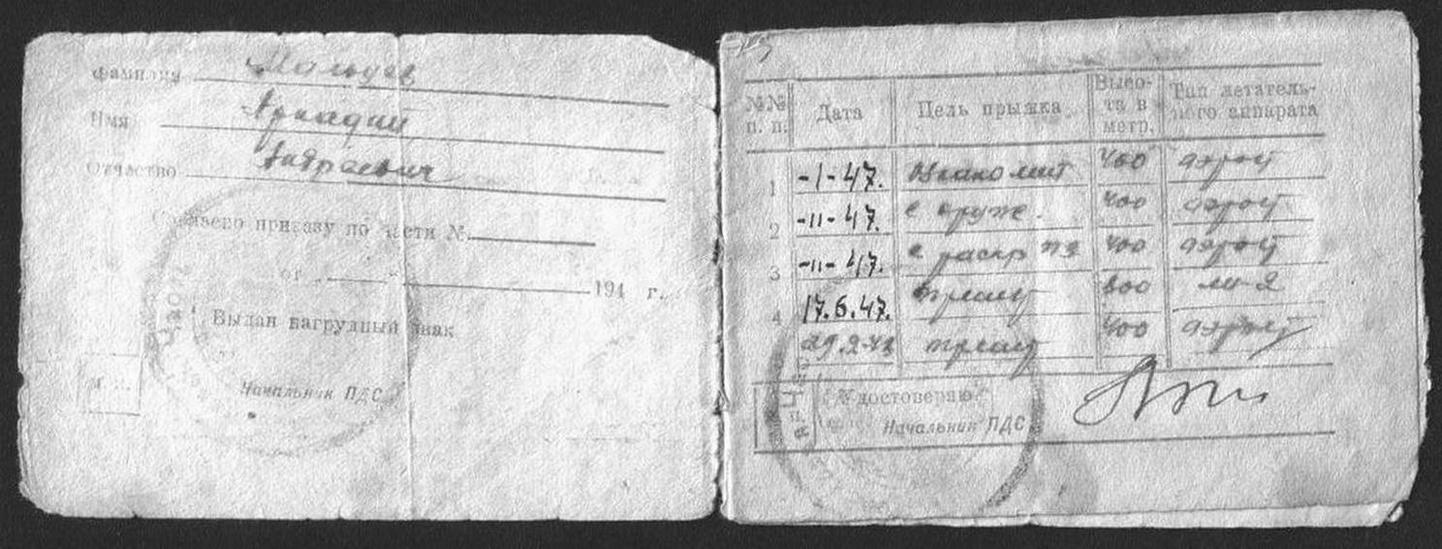 Фамилия Мальцев
Имя Аркадий
Отчество Андреевич
Согласно приказу по части №
от 194 г.
Выдан нагрудный знак
Начальник ПДС
№№ п. п. Дата Цель прыжка Высота в метр. Тип летательного аппарата
1 -1-47. Ознакомит 400 аэрост
2 -11-47. с оруж. 400 аэрост
3 -11-47. с раскр пз 400 аэрост
4 17.6.47. 800 ли-2
400 аэрост
Удостоверяю
Начальник ПДС